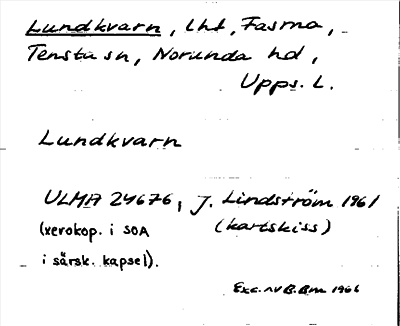 Lundkvarn, lht, Fasma,
Tensta sn, Norunda hd,
Upps. L.
Lundkvarn
ULMA 24676, J. Lindström 1961
(xerokop. i SOA (kartskiss)
i särsk. kapsel).
Exc. av B. Bm 1966